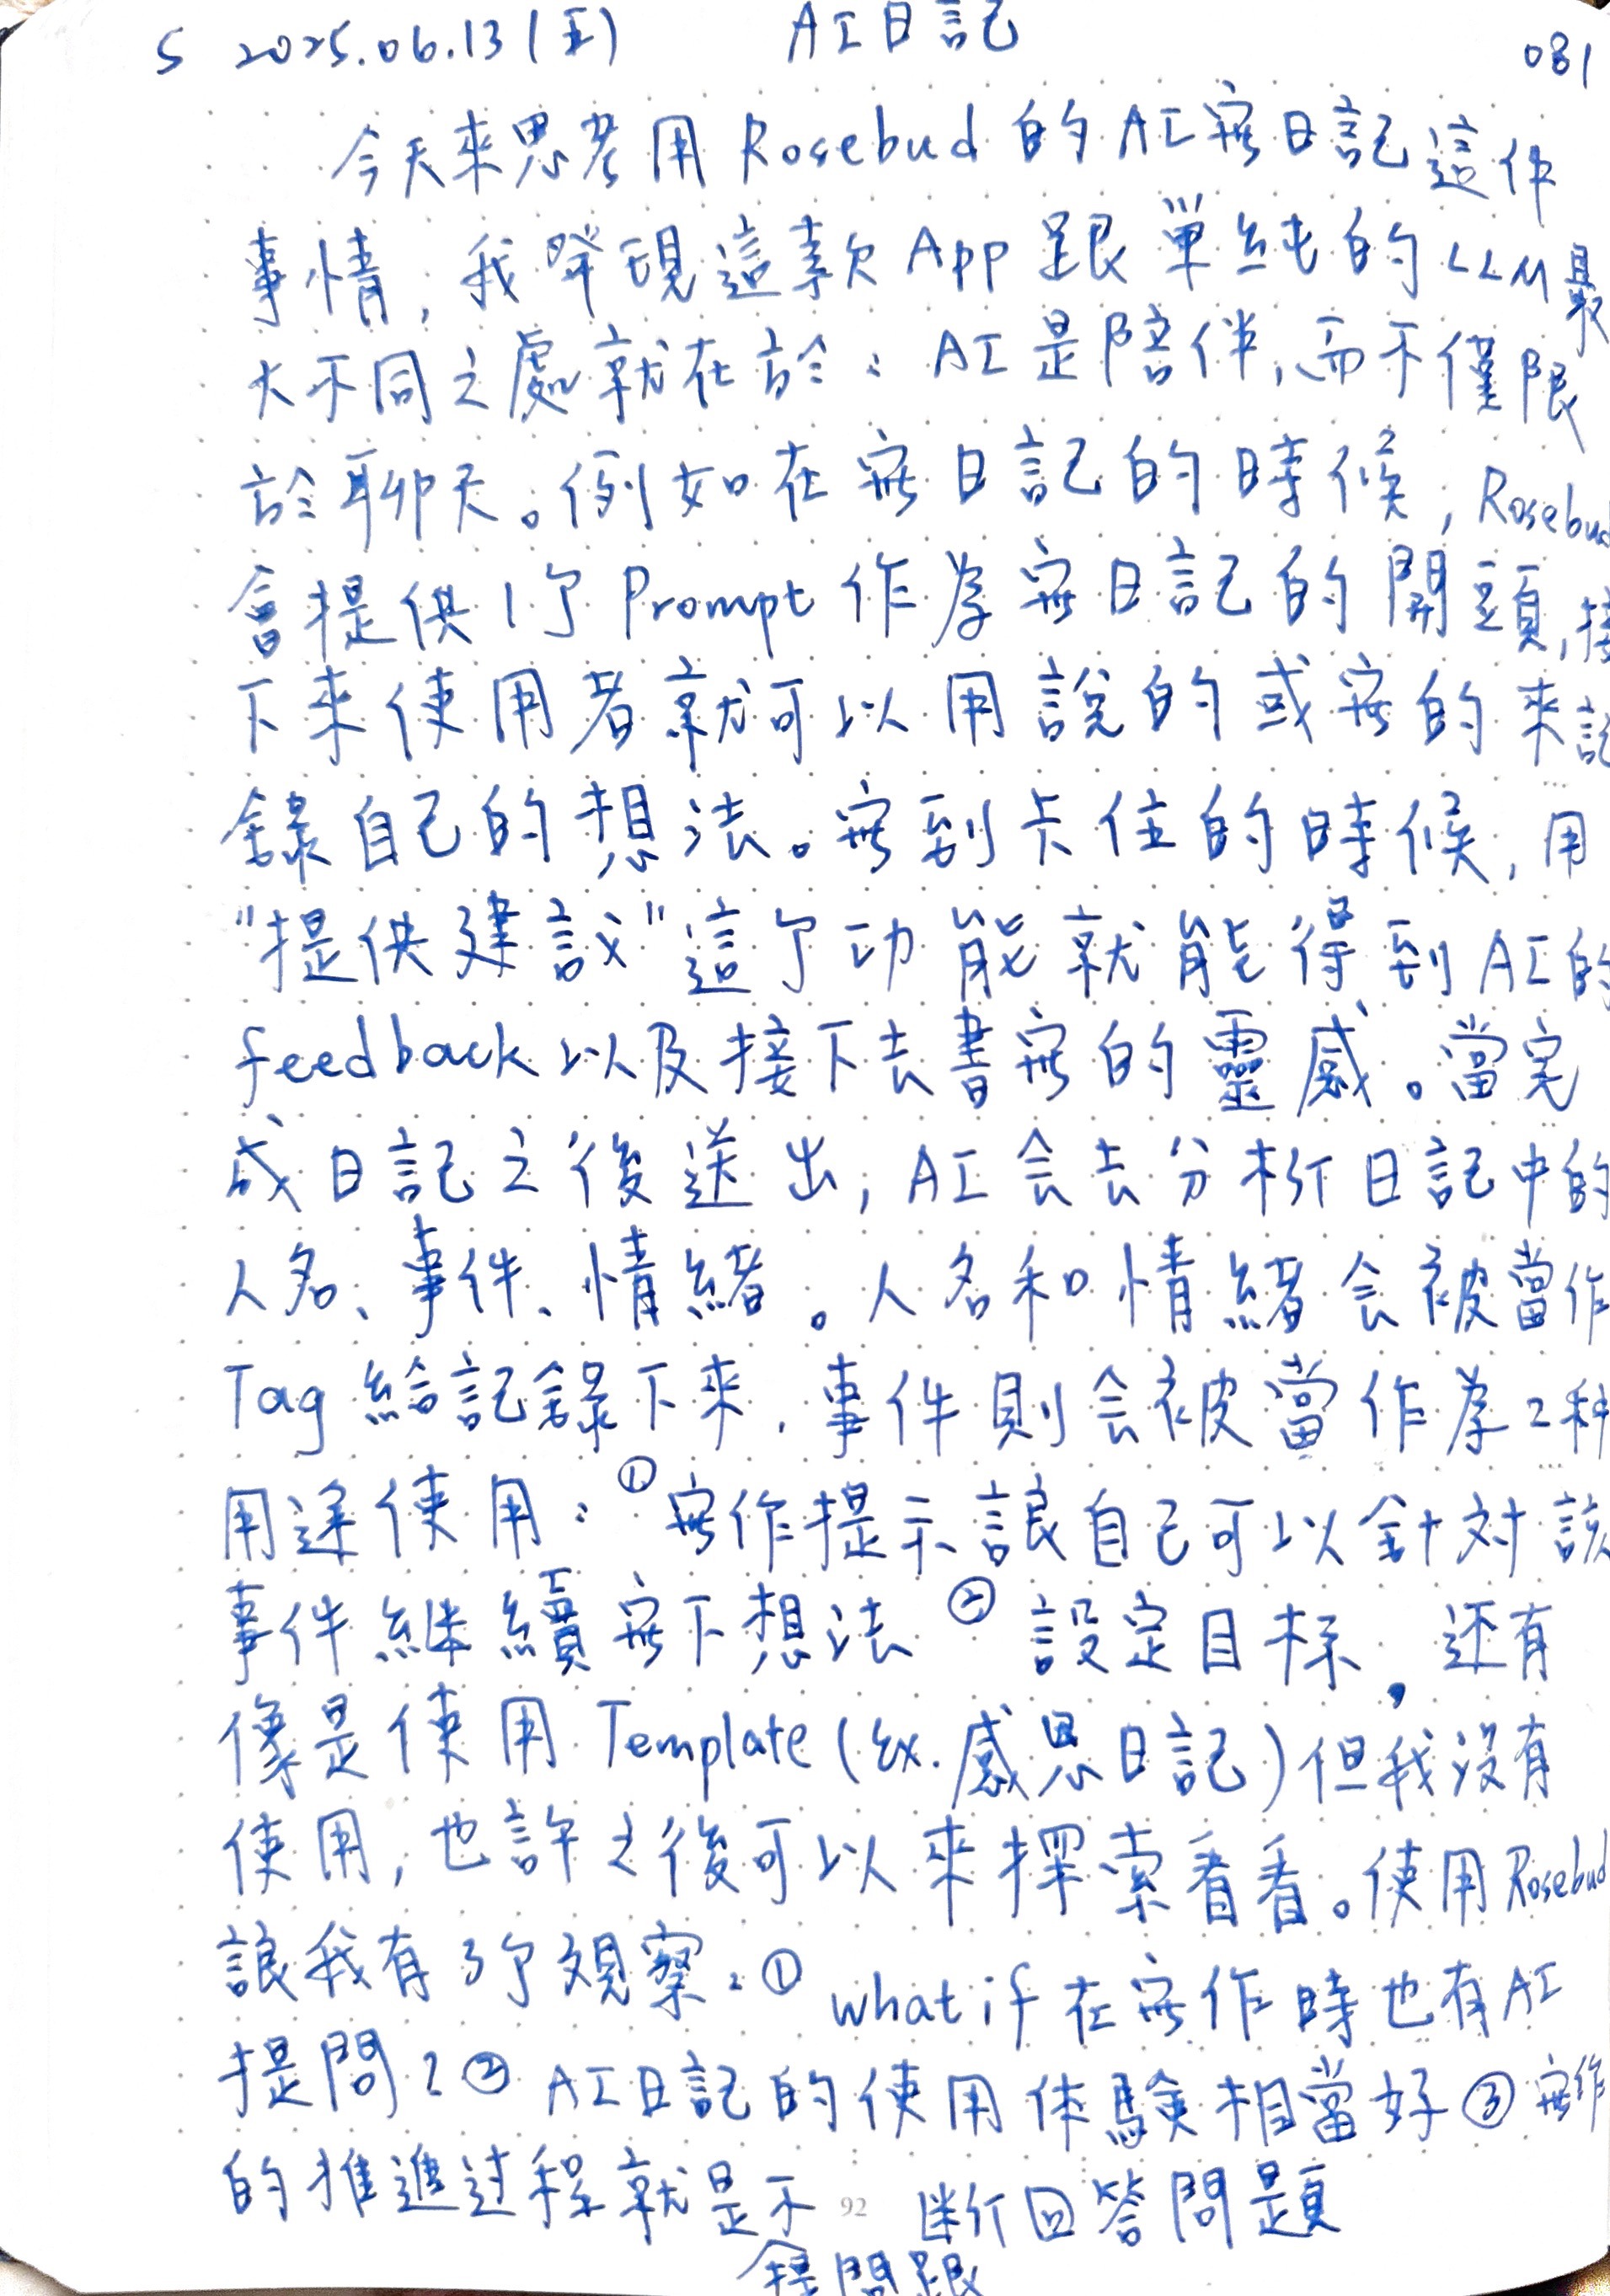 S 2025.06.13(五) AI日記 081
今天來思考用 Rosebud 的 AI 寫日記這件
事情,我發現這款 App 跟單純的 LLM 最
大不同之處就在於:AI 是陪伴,而不僅限
於聊天。例如在寫日記的時候,Rosebud
會提供1个 Prompt 作為寫日記的開頭,接
下來使用者就可以用說的或寫的來記
錄自己的想法。寫到卡住的時候,用
"提供建議"這个功能就能得到 AI 的
feedback 以及接下去書寫的靈感。當完
成日記之後送出,AI 会去分析日記中的
人名、事件、情緒。人名和情緒会被當作
Tag 給記錄下來,事件則会被當作為2種
用途使用:①寫作提示讓自己可以針对該
事件継續寫下想法 ②設定目标,还有
像是使用 Template (Ex. 感恩日記) 但我沒有
使用,也許之後可以來探索看看。使用 Rosebud
讓我有3个观察:① what if 在寫作時也有 AI
提問?② AI日記的使用体驗相當好 ③ 寫作
的推進过程就是不断回答問題
92
提問跟